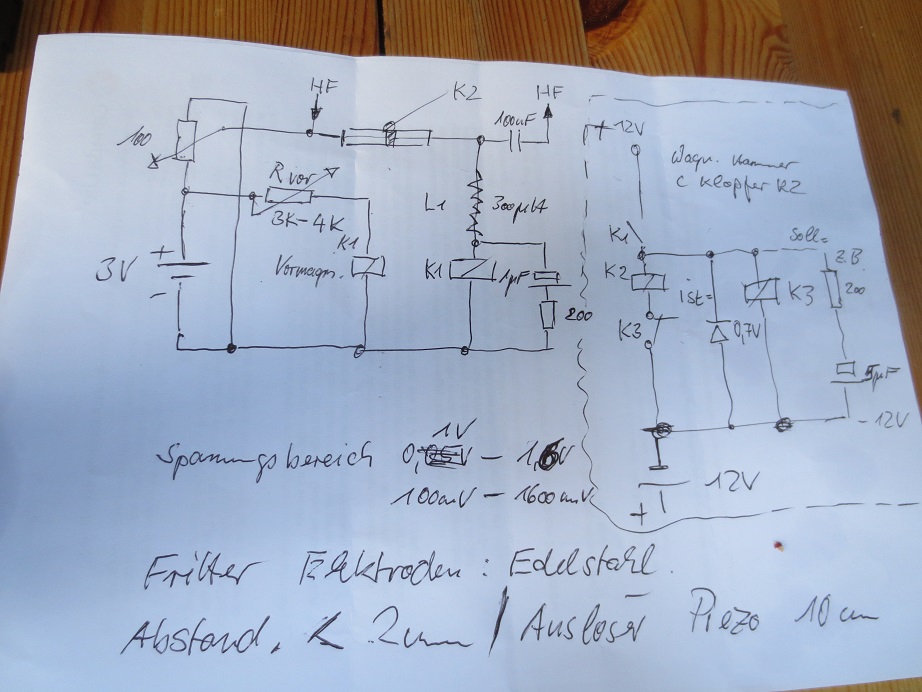 HF
K2
HF
100
100nF
+ 12V
Wagn. Hammer
C Klopfer K2
R vor
3K-4K
L1
300µH
K1
Soll=
z.B.
K1
3V
+
-
Vormagn.
K1
1µF
200
K2
ist=
K3
200
K3
0,7V
5µF
- 12V
12V
+
1V
Spannungsbereich 0, - 1,6V
100mV - 1600mV
Fritter Elektroden: Edelstahl.
Abstand. < 2mm / Auslöser Piezo 10cm